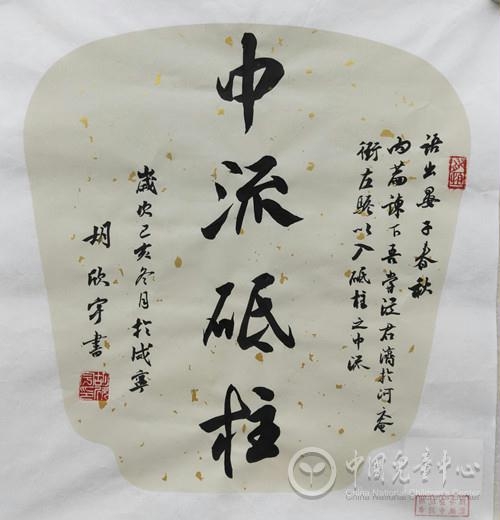 语出晏子春秋
内篇谏下吾尝从君济於河鼋
衔左骖以入砥柱之中流
中流砥柱
歲次己亥冬月於咸寧
胡欣宇書
中国儿童中心
China National Children's Center